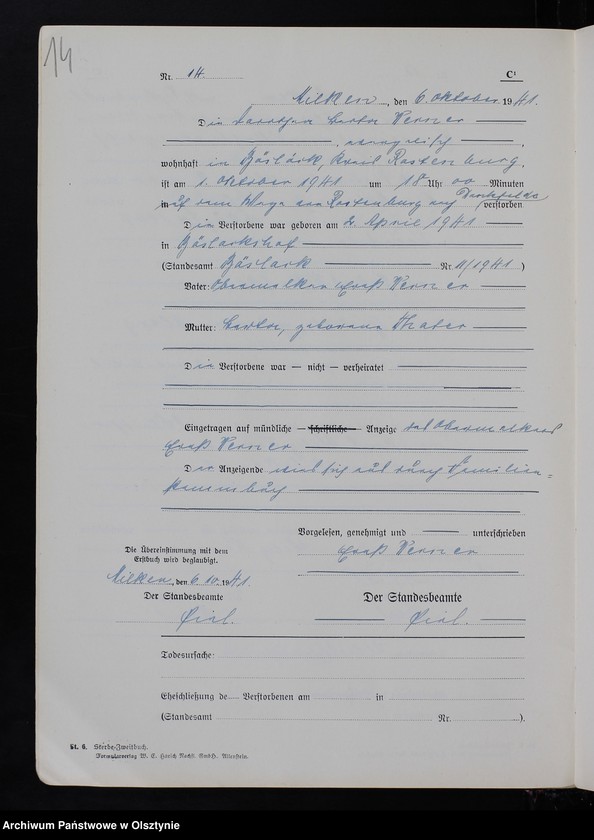 14
Nr. 14. C¹
Milken, den 6. Oktober 1941.
Die Dorothea Herta Werner
evangelisch,
wohnhaft in Bäslack, Kreis Rastenburg,
ist am 1. Oktober 1941 um 18 Uhr 00 Minuten
auf dem Wege von Rastenburg nach verstorben
Die Verstorbene war geboren am 2. April 1941
in Bäslackshof
(Standesamt Bäslack Nr. 11/1941)
Vater: Obermelker Ernst Werner
Mutter: Herta, geborene Thater
Die Verstorbene war — nicht — verheiratet
Eingetragen auf mündliche — schriftliche — Anzeige des Obermelkers
Ernst Werner
Der Anzeigende weist sich aus durch Familien=
stammbuch
Vorgelesen, genehmigt und unterschrieben
Ernst Werner
Die Übereinstimmung mit dem
Erstbuch wird beglaubigt.
Milken, den 6.10.1941.
Der Standesbeamte Der Standesbeamte
Todesursache:
Eheschließung de Verstorbenen am in
(Standesamt Nr. ).
St. 6. Sterbe-Zweitbuch.
Formularverlag W. E. Harich Nachfl. GmbH., Allenstein.
Archiwum Państwowe w Olsztynie